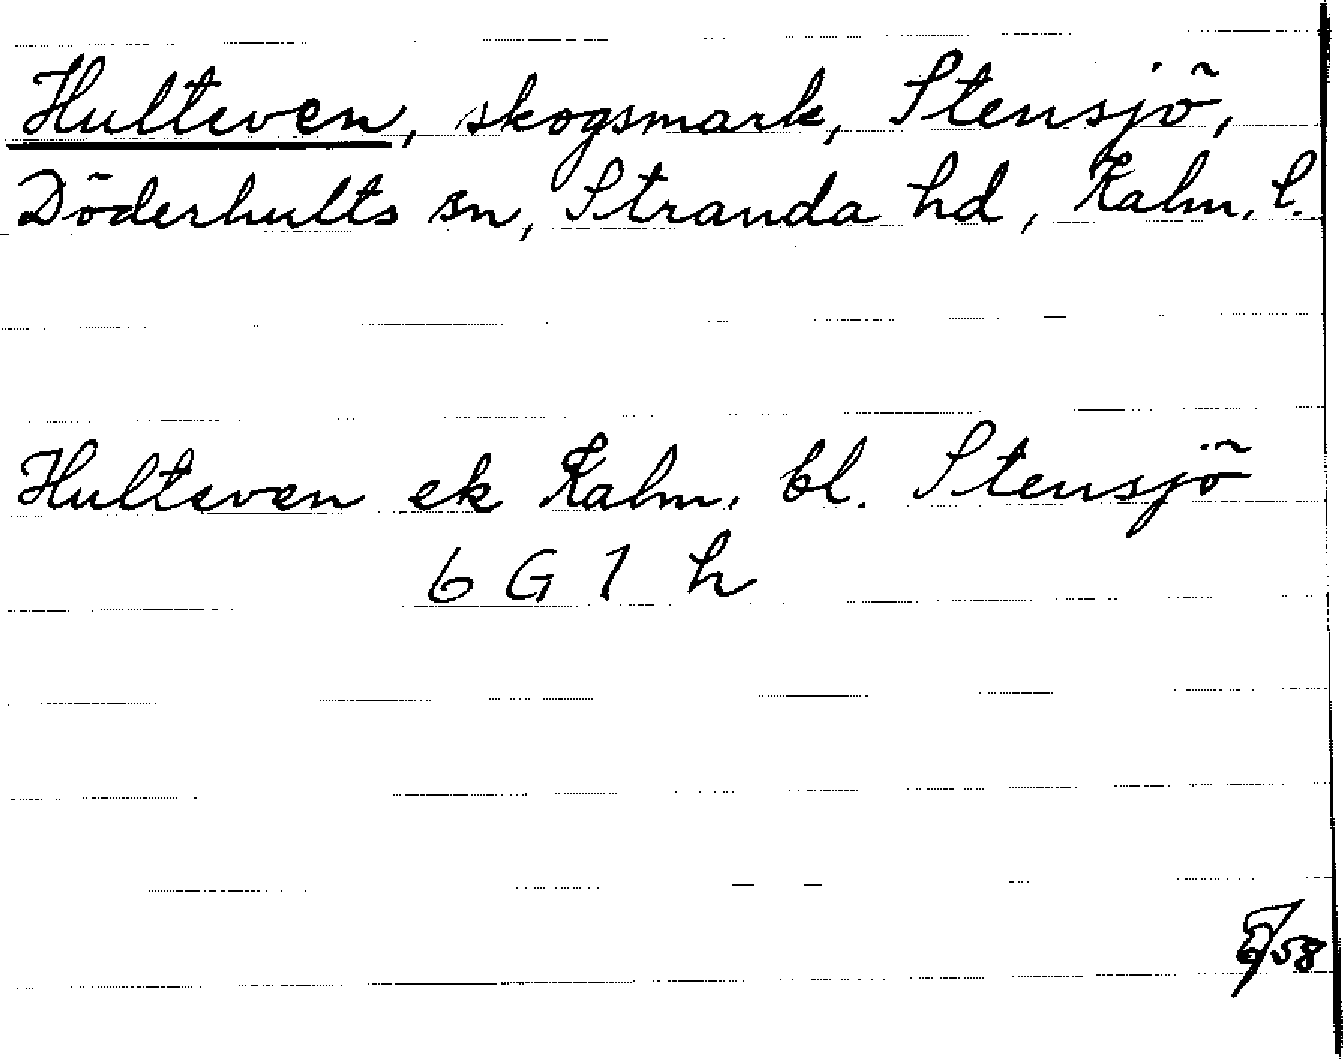 Hulteven, skogsmark, Stensjö,
Döderhults sn, Stranda hd, Kalm. l.
Hulteven ek Kalm. bl. Stensjö
6 G 1 h
58